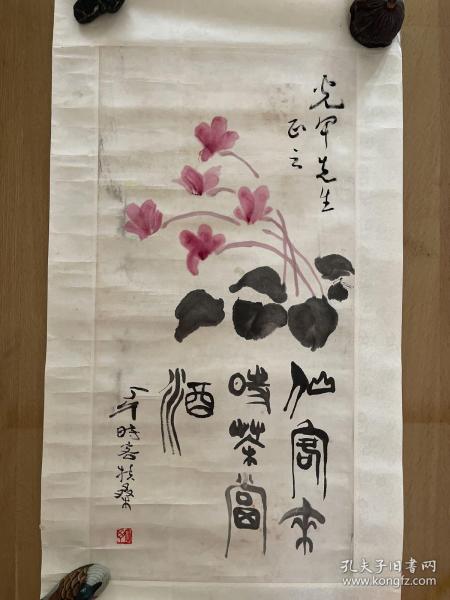 光
先生
正之
仙客來
時茶當
酒
時客扶桑
孔夫子旧书网
www.kongfz.com